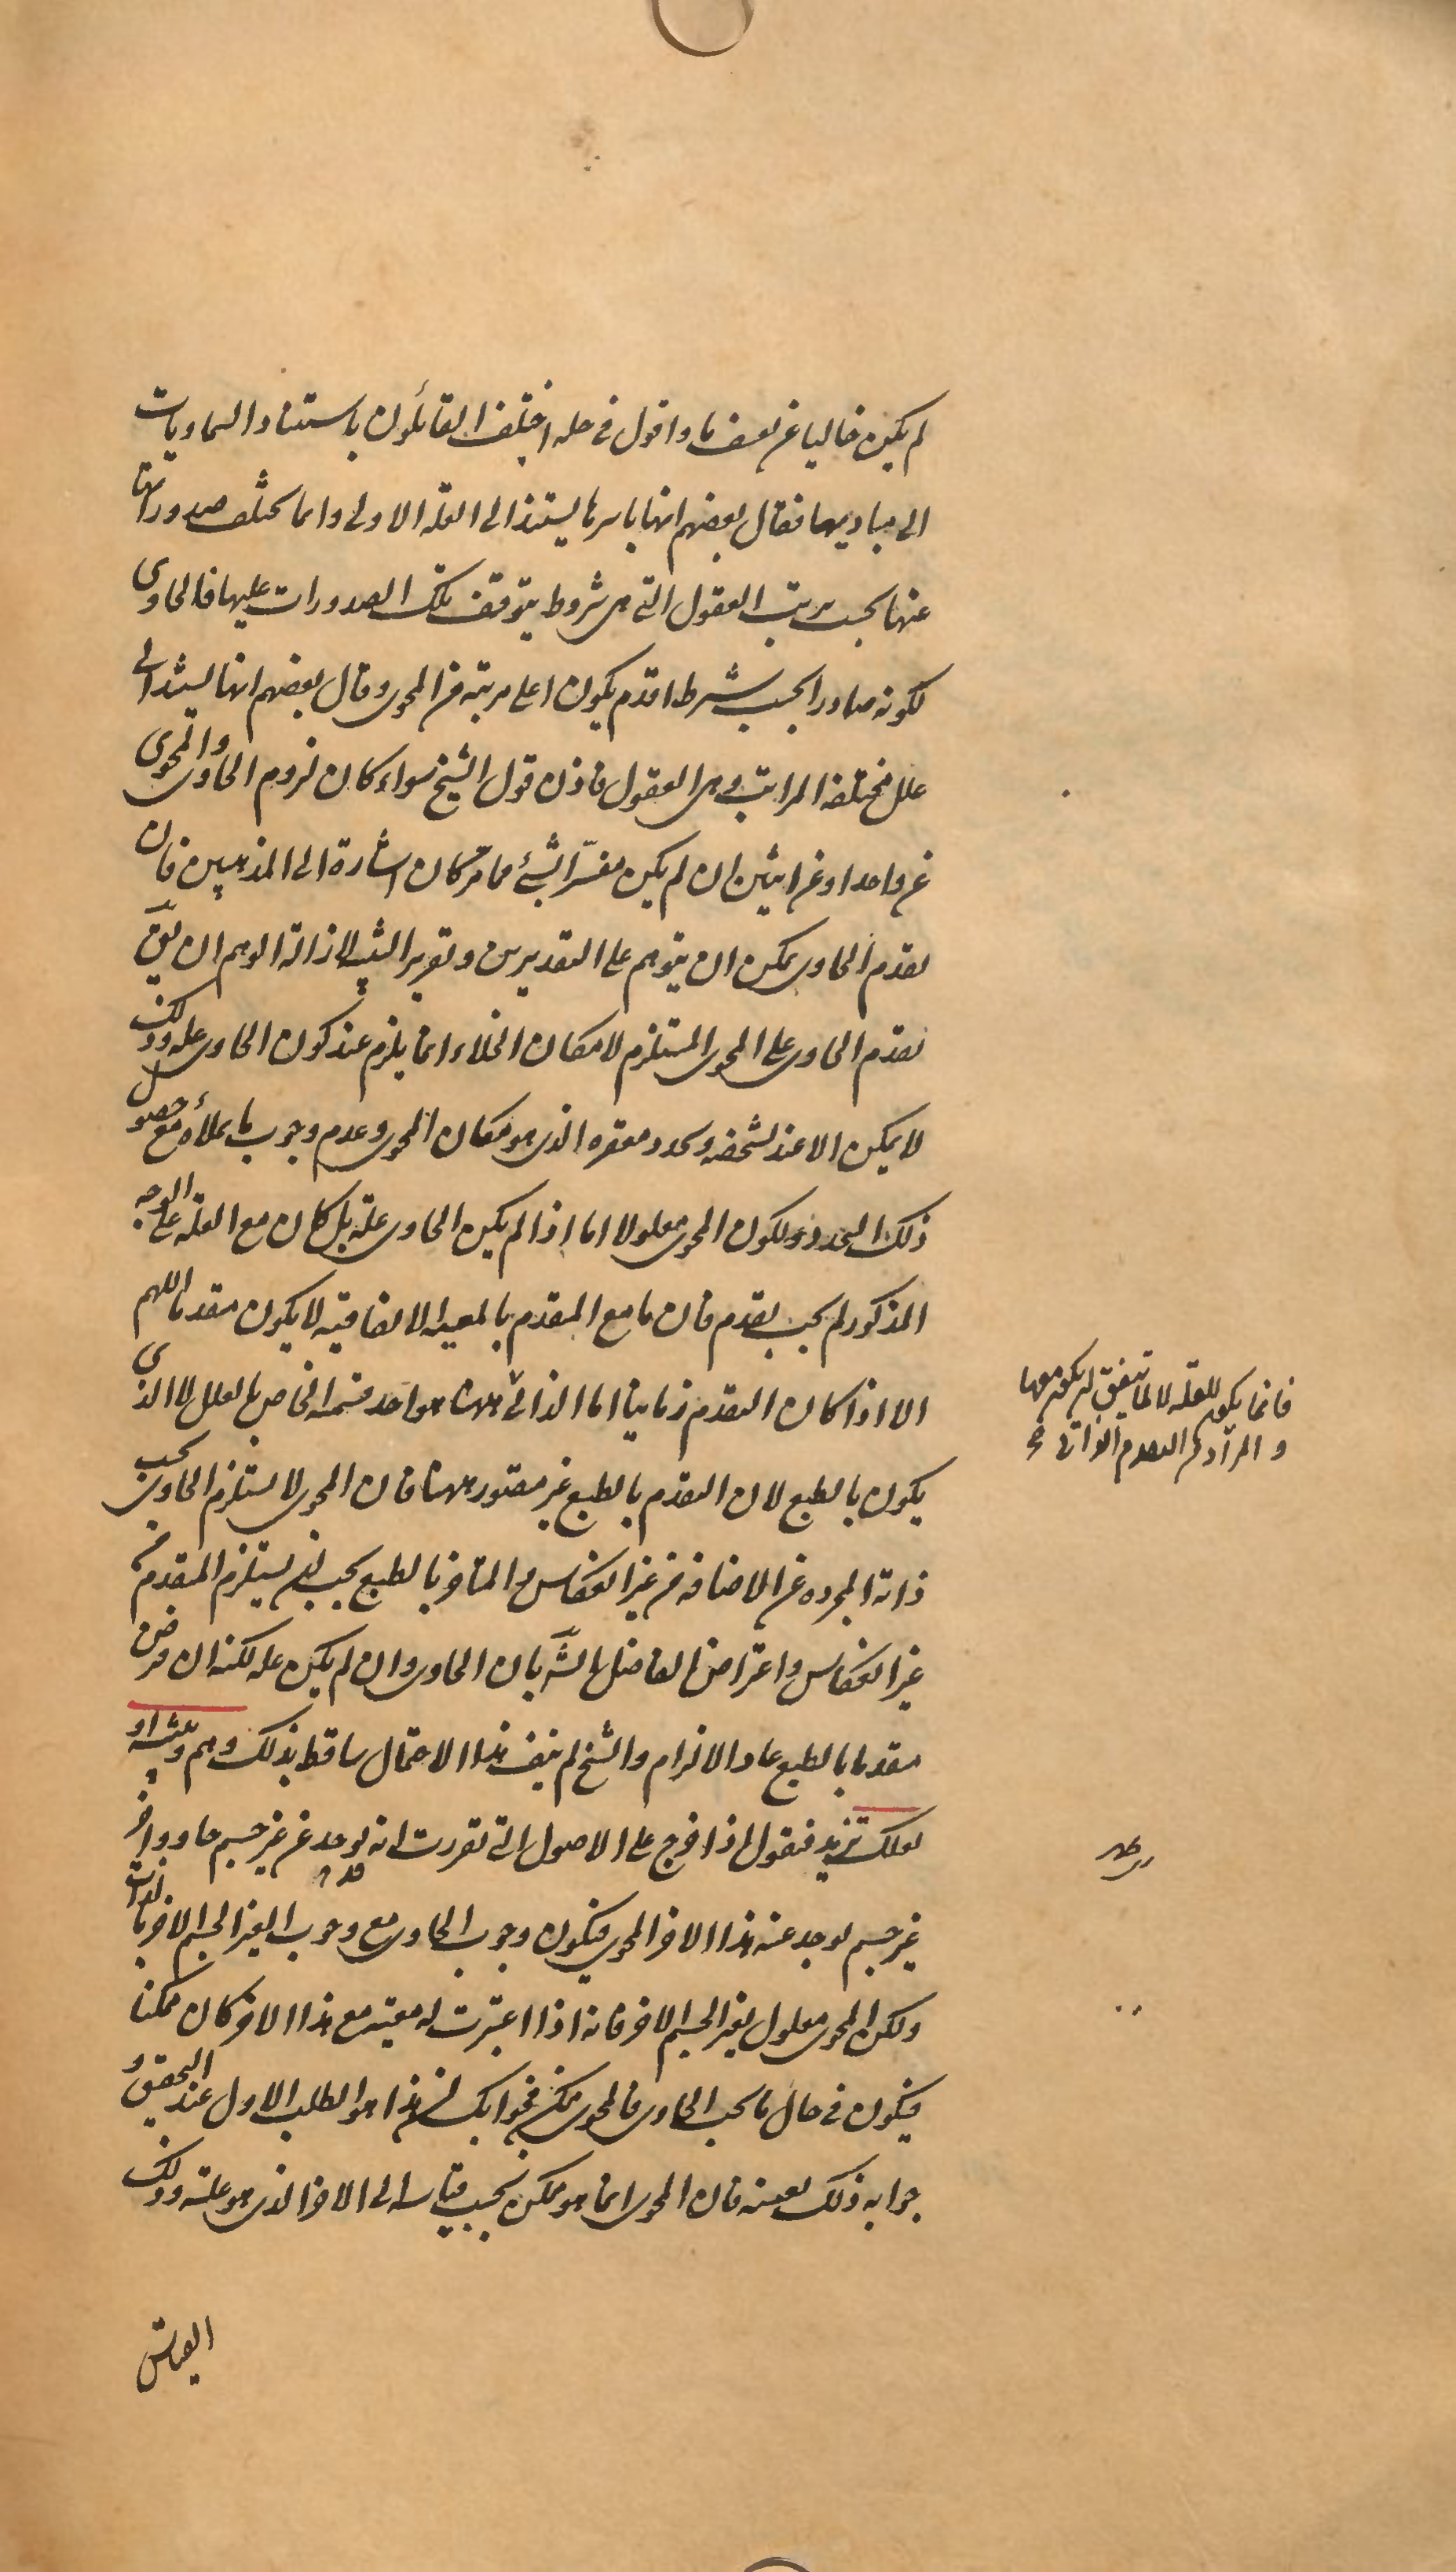 لم يكن خاليا عن تعسف ما واقول فى حله اختلف القائلون باستناد السماويات
الى مباديها فقال بعضهم انها باسرها يستند الى العلة الاولى وانما يختلف صدوراتها
عنها بحسب ترتيب العقول التى هى شروط يتوقف تلك الصدورات عليها فالحاوى
لكونه صادرا بحسب شرط اقدم يكون اعلى مرتبة من المحوى وقال بعضهم انها يستند الى
علل مختلفة المراتب وهى العقول فاذن قول الشيخ سواء كان لزوم الحاوى والمحوى
عن واحد او عن اثنين ان لم يكن مفسرا لشئ مما مر كان اشارة الى المذهبين فان
تقدم الحاوى يمكن ان يتوهم على التقديرين وتقرير التنبيه لازالة الوهم ان يقّ
تقدم الحاوى على المحوى المستلزم لامكان الخلاء انما يلزم عند كون الحاوى علة وذلك
لا يمكن الا عند تشخصه وتحدد مقعره الذى هو مكان المحوى وعدم وجوب ما يملأه مع حصول
ذلك التحدد ولكون المحوى معلولا اما اذا لم يكن الحاوى علة بل كان مع العلة على الوجه
المذكور لم يجب تقدم فان ما مع المتقدم بالمعية الاتفاقية لا يكون متقدما اللهم
الا اذا كان التقدم زمانيا اما الذاتى ههنا هو احد قسميه الخاص بالعلل لا الذى
فانما يكون للعلة لا لما يتفق ان يكون معها
والمراد من التقدم الذاتى
يكون بالطبع لان التقدم بالطبع غير متصور ههنا فان المحوى لا يستلزم الحاوى بحسب
ذاته المجردة عن الاضافة من غير انعكاس والمتاخر بالطبع يجب ان يستلزم المتقدم من
غير انعكاس واعتراض الفاضل الشّ بان الحاوى وان لم يكن علة لكنه ان فرض
متقدما بالطبع عاد الالزام والشيخ لم ينف هذا الاحتمال ساقط بذلك وهم وتنبيه او
لعلك تزيد فتقول اذا خرج على الاصول التى تقررت انه يوجد عن غير جسم حاو واخر
غير جسم يوجد عنه هذا الاخر المحوى فيكون وجوب الحاوى مع وجوب الغير الجسم الاخر بالذات
ولكن المحوى معلول لغير الجسم الاخر فانه اذا اعتبرت له معية مع هذا الاخر كان ممكنا
فيكون فى حال ما يجب الحاوى فالمحوى ممكن فجوابك ان هذا هو الطلب الاول عند التحقيق و
جوابه ذلك بعينه فان المحوى انما هو ممكن بحسب قياسه الى الاخر الذى هو علته وذلك
القياس